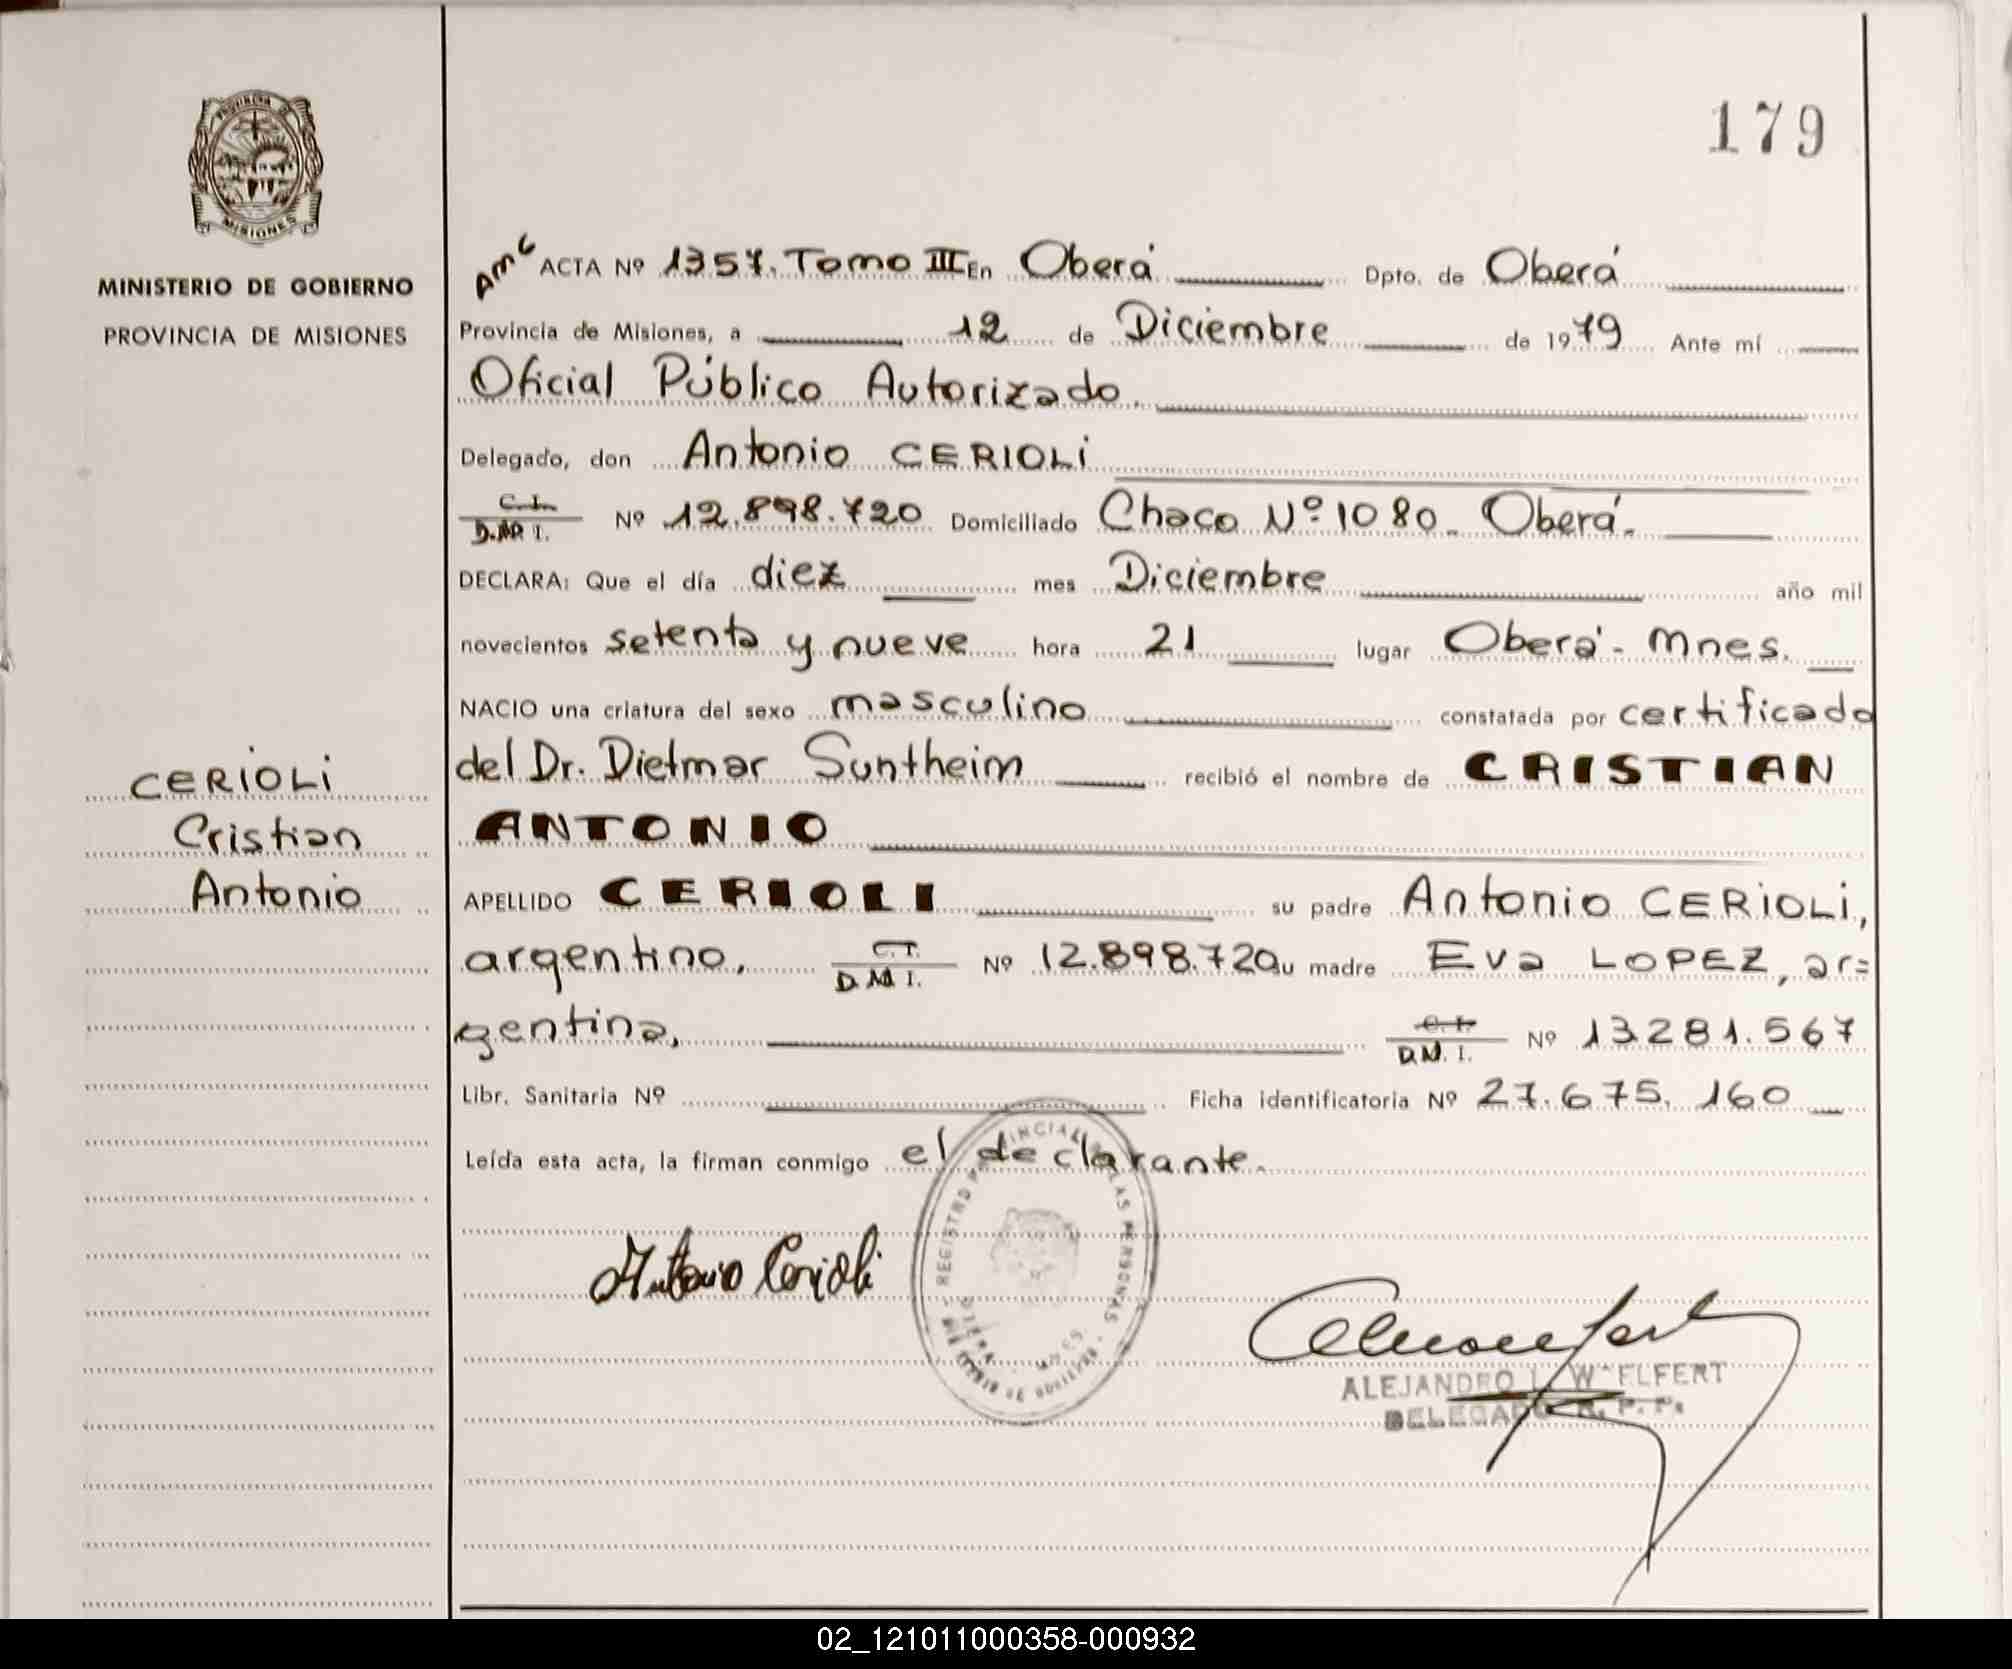 179
PROVINCIA DE
MISIONES
MINISTERIO DE GOBIERNO
PROVINCIA DE MISIONES
AMC ACTA Nº 1357. Tomo III En Oberá Dpto. de Oberá
Provincia de Misiones, a 12 de Diciembre de 1979 Ante mí
Oficial Público Autorizado.
Delegado, don Antonio CERIOLI
C.I.
D.N.I. Nº 12.898.720 Domiciliado Chaco Nº 1080 - Oberá -
DECLARA: Que el día diez mes Diciembre año mil
novecientos setenta y nueve hora 21 lugar Oberá - Mnes.
NACIO una criatura del sexo masculino constatada por certificado
del Dr. Dietmar Suntheim recibió el nombre de CRISTIAN
ANTONIO
APELLIDO CERIOLI su padre Antonio CERIOLI,
argentino, C.I.
D.N.I. Nº 12.898.720 su madre Eva LOPEZ, ar=
gentina, C.I.
D.N.I. Nº 13281.567
Libr. Sanitaria Nº Ficha identificatoria Nº 27.675.160
Leída esta acta, la firman conmigo el declarante.
CERIOLI
Cristian
Antonio
Antonio Cerioli
REGISTRO PROVINCIAL DE LAS PERSONAS
OBERA - MNES.
ALEJANDRO L. WAELFERT
DELEGADO R. P. P.
02_121011000358-000932